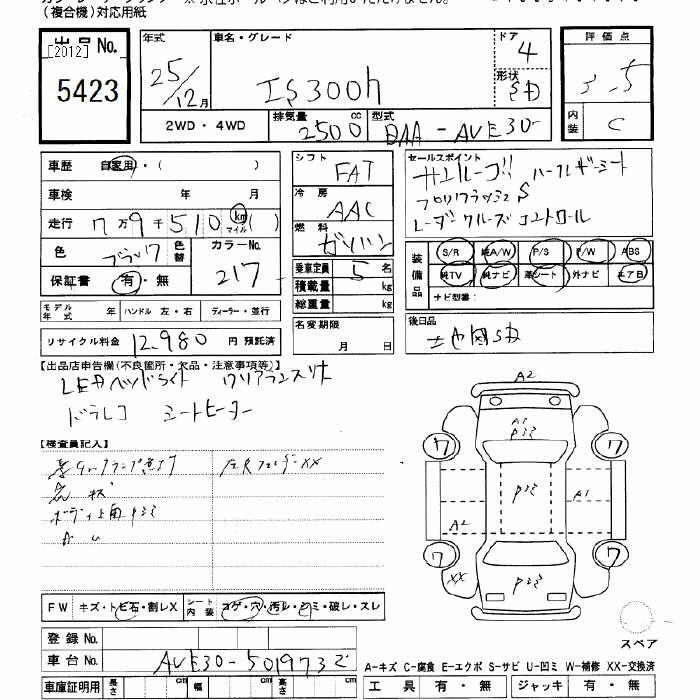 (複合機)対応用紙
出品No.
[2012]
5423
年式
25/12月
車名・グレード
IS300h
ドア
4
形状
SD
評価点
3.5
内装
C
2WD・4WD
排気量
2500 cc
型式
DAA-AVE30-
車歴 自家用・( )
車検 年 月
走行 7万9千510 km マイル ( )
色 ブラック 色替 カラーNo. 217
保証書 有・無
モデル年式 年 ハンドル 左・右 ディーラー・並行
リサイクル料金 12,980 円 預託済
シフト FAT
冷房 AAC
燃料 ガソリン
乗車定員 5 名
積載量 kg
総重量 kg
名変期限
月 日
セールスポイント
サンルーフ!! ハーフレザーシート
プリクラッシュS
レーダクルーズコントロール
装備品
S/R 純A/W P/S P/W ABS
純TV 純ナビ 革シート 外ナビ エアB
ナビ型番:
後日品
【出品店申告欄(不良箇所・欠品・注意事項等)】
LEDヘッドライト クリアランスソナ
ドラレコ シートヒーター
【検査員記入】
左Rフェンダーxx
ボディ上面
A2
7 7
A1
A2
7 7
XX
スペア
FW キズ・トビ石・割レX シート内装 コゲ・穴・汚レ・シミ・破レ・スレ
登録No.
車台No. AVE30-5019732
車庫証明用 長さ cm 幅 cm 高さ cm
A-キズ C-腐食 E-エクボ S-サビ U-凹ミ W-補修 XX-交換済
工具 有・無 ジャッキ 有・無